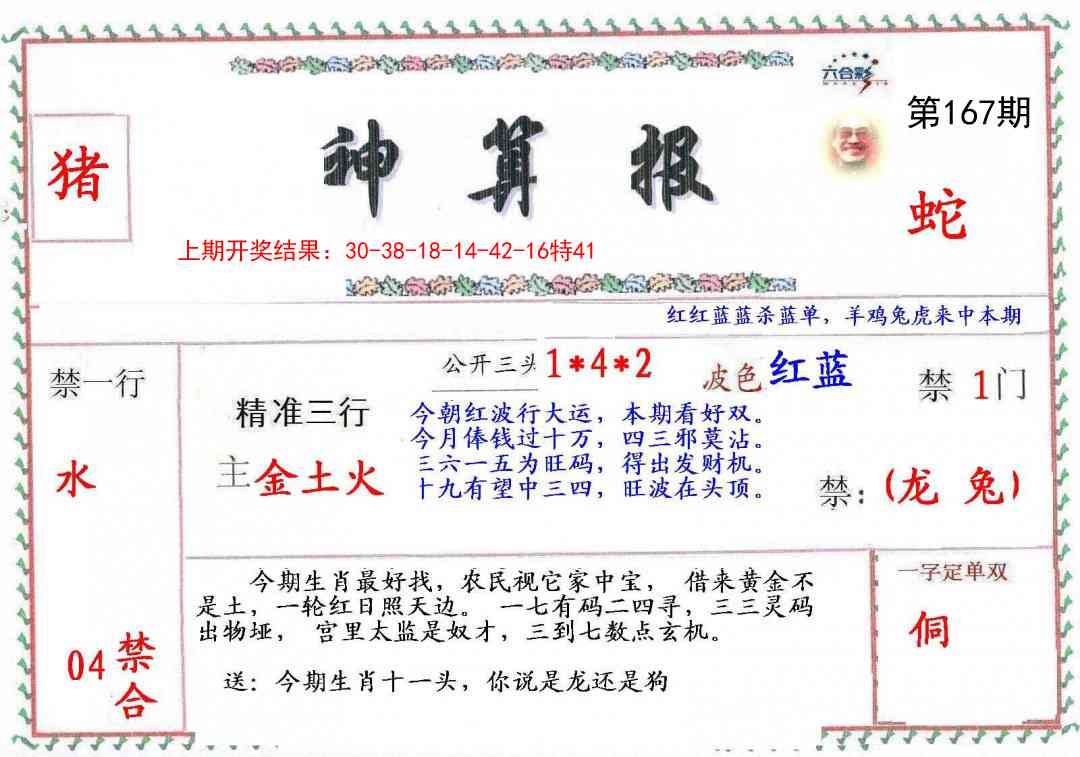 六合彩
第167期
猪
神算报
蛇
上期开奖结果：30-38-18-14-42-16特41
红红蓝蓝杀蓝单，羊鸡兔虎来中本期
禁一行
水
04禁合
公开三头1*4*2
波色红蓝
精准三行
主金土火
今朝红波行大运，本期看好双。
今月俸钱过十万，四三邪莫沾。
三六一五为旺码，得出发财机。
十九有望中三四，旺波在头顶。
禁 1门
禁：(龙 兔)
今期生肖最好找，农民视它家中宝， 借来黄金不
是土，一轮红日照天边。 一七有码二四寻，三三灵码
出物垭， 宫里太监是奴才，三到七数点玄机。
送：今期生肖十一头，你说是龙还是狗
一字定单双
侗